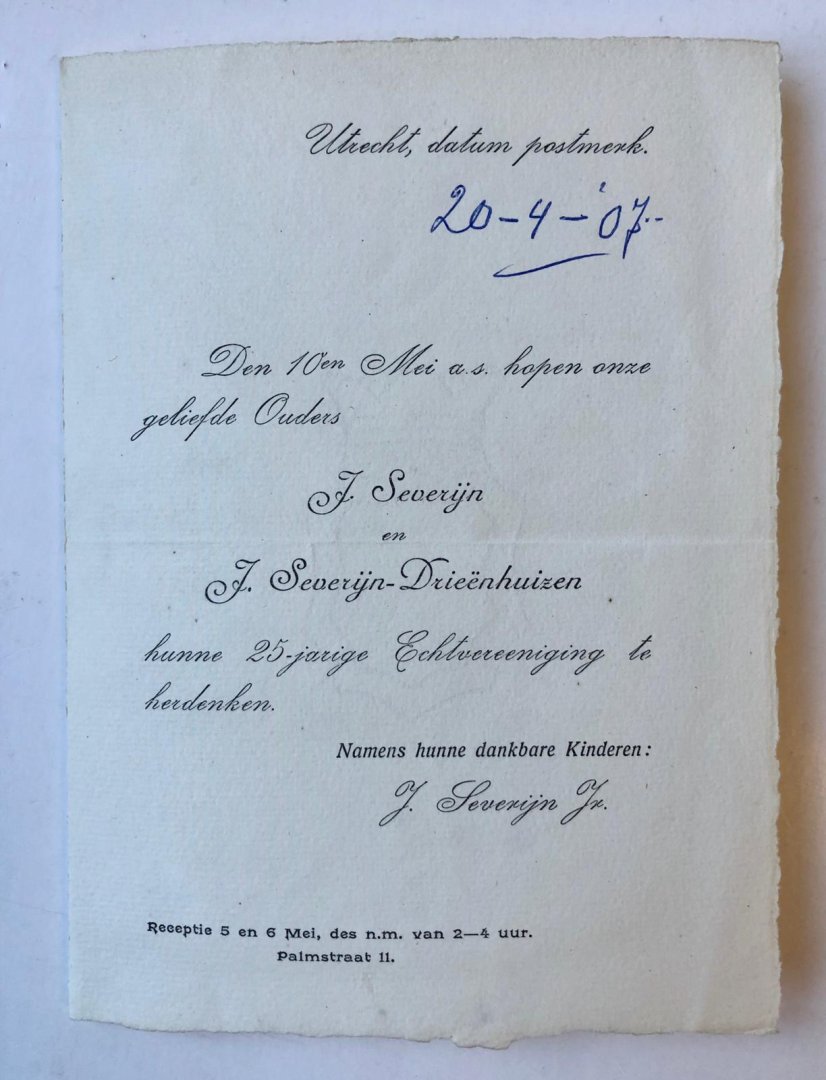 Utrecht, datum postmerk.
20-4-'07.-
Den 10en Mei a.s. hopen onze
geliefde Ouders
J. Severijn
en
J. Severijn-Drieënhuizen
hunne 25-jarige Echtvereeniging te
herdenken.
Namens hunne dankbare Kinderen:
J. Severijn Jr.
Receptie 5 en 6 Mei, des n.m. van 2—4 uur.
Palmstraat 11.